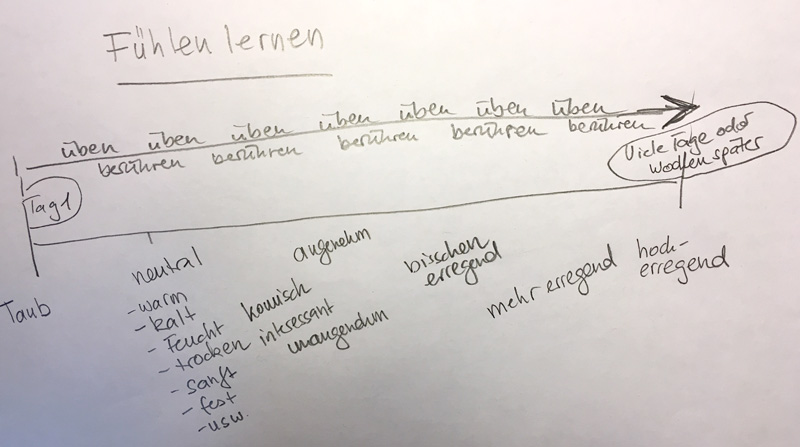 Fühlen lernen
üben üben üben üben üben üben üben
berühren berühren berühren berühren berühren
Tag 1
Viele Tage oder
Wochen später
Taub
neutral
- warm
- kalt
- Feucht
- trocken
- sanft
- fest
- usw.
angenehm
komisch
interessant
unangenehm
bisschen
erregend
mehr erregend
hoch-
erregend